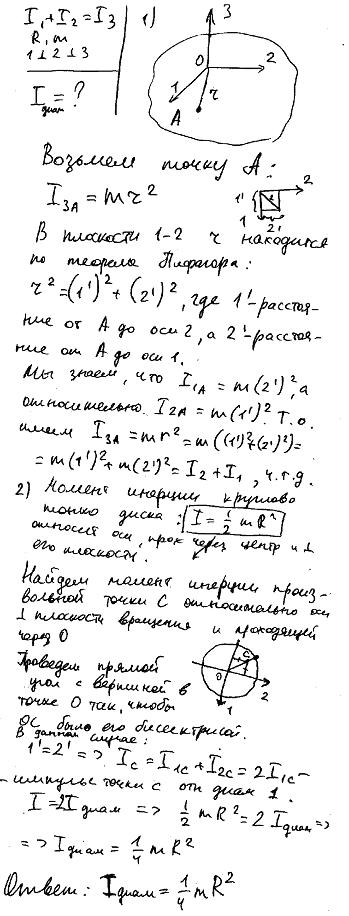 I₁+I₂=I₃
R, m
1⊥2⊥3
I диам = ?
1)
3
O
2
1
A
r
Возьмем точку A:
I₃A = mr²
2
1'
1
2'
В плоскости 1-2 r находится
по теореме Пифагора:
r²=(1')²+(2')², где 1'-расстоя-
ние от A до оси 2, а 2'-расстоя-
ние от A до оси 1.
Мы знаем, что I₁A = m(2')², а
относительно I₂A = m(1')². Т.о.
имеем I₃A = mr² = m((1')²+(2')²)=
= m(1')²+m(2')² = I₂ + I₁, ч.т.д.
2) Момент инерции круглого
тонко диска: I = ½ mR²
относит оси, прох через центр и ⊥
его плоскости.
Найдем момент инерции произ-
вольной точки C относительно оси
⊥ плоскости вращения и проходящей
через O
Проведем прямой
угол с вершиной в
точке O так, чтобы
OC было его биссектрисой.
C
O
2
1
В данном случае:
1'=2' => I_C = I₁C + I₂C = 2I₁C -
- импульс точки C отн диам 1.
I = 2I диам => ½ mR² = 2 I диам =>
=> I диам = ¼ mR²
Ответ: I диам = ¼ mR²